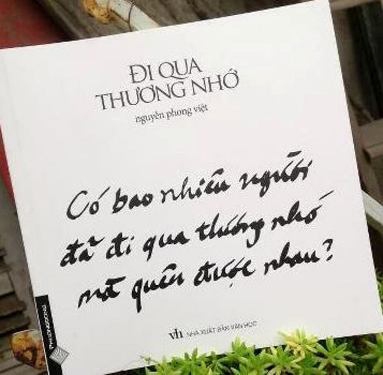 ĐI QUA
THƯƠNG NHỚ
nguyễn phong việt
Có bao nhiêu người
đã đi qua thương nhớ
mà quên được nhau?
vh NHÀ XUẤT BẢN VĂN HỌC
PHUONGDONG